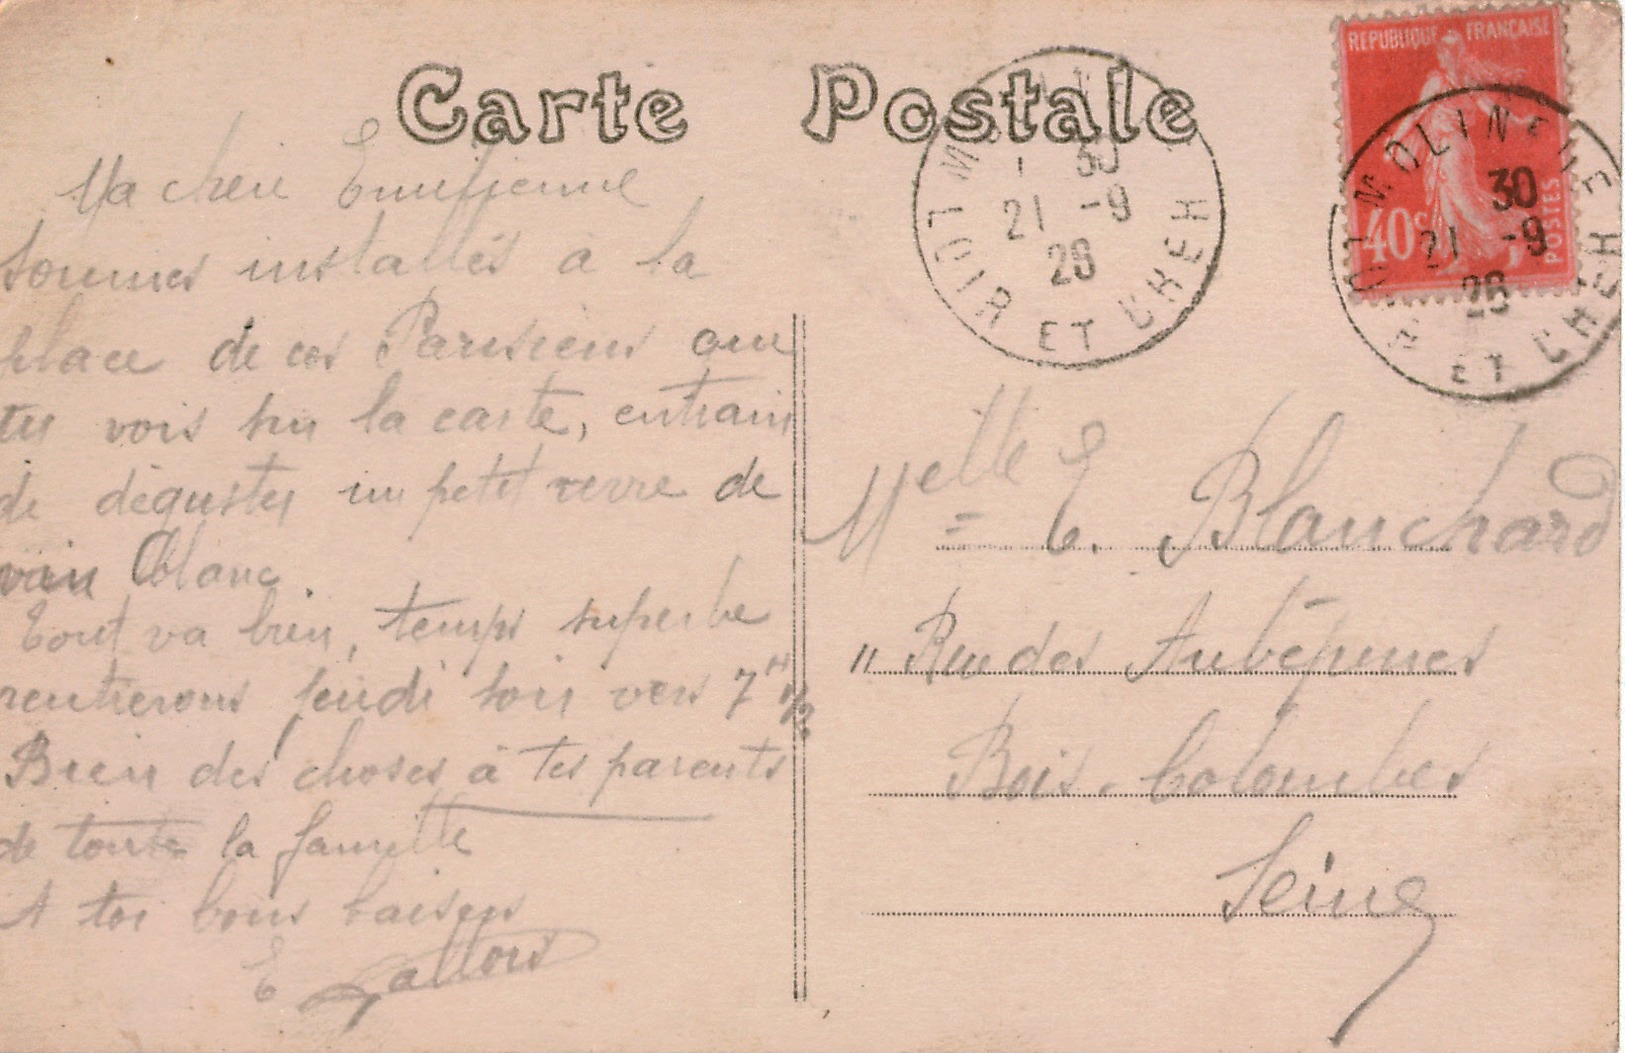 Carte Postale
REPUBLIQUE FRANÇAISE
40c
POSTES
MOLINEUF
30
21 -9
26
LOIR ET CHER
30
21 -9
26
LOIR ET CHER
Ma chère Emilienne
sommes installés à la
place de ces Parisiens que
tu vois sur la carte, entrain
de déguster un petit verre de
vin blanc.
Tout va bien, temps superbe
rentrerons jeudi soir vers 7H 1/2
Bien des choses à tes parents
de toute la famille
A toi bons baisers
E Gallois
Melle E. Blanchard
11 Rue des Aubépines
Bois-Colombes
Seine